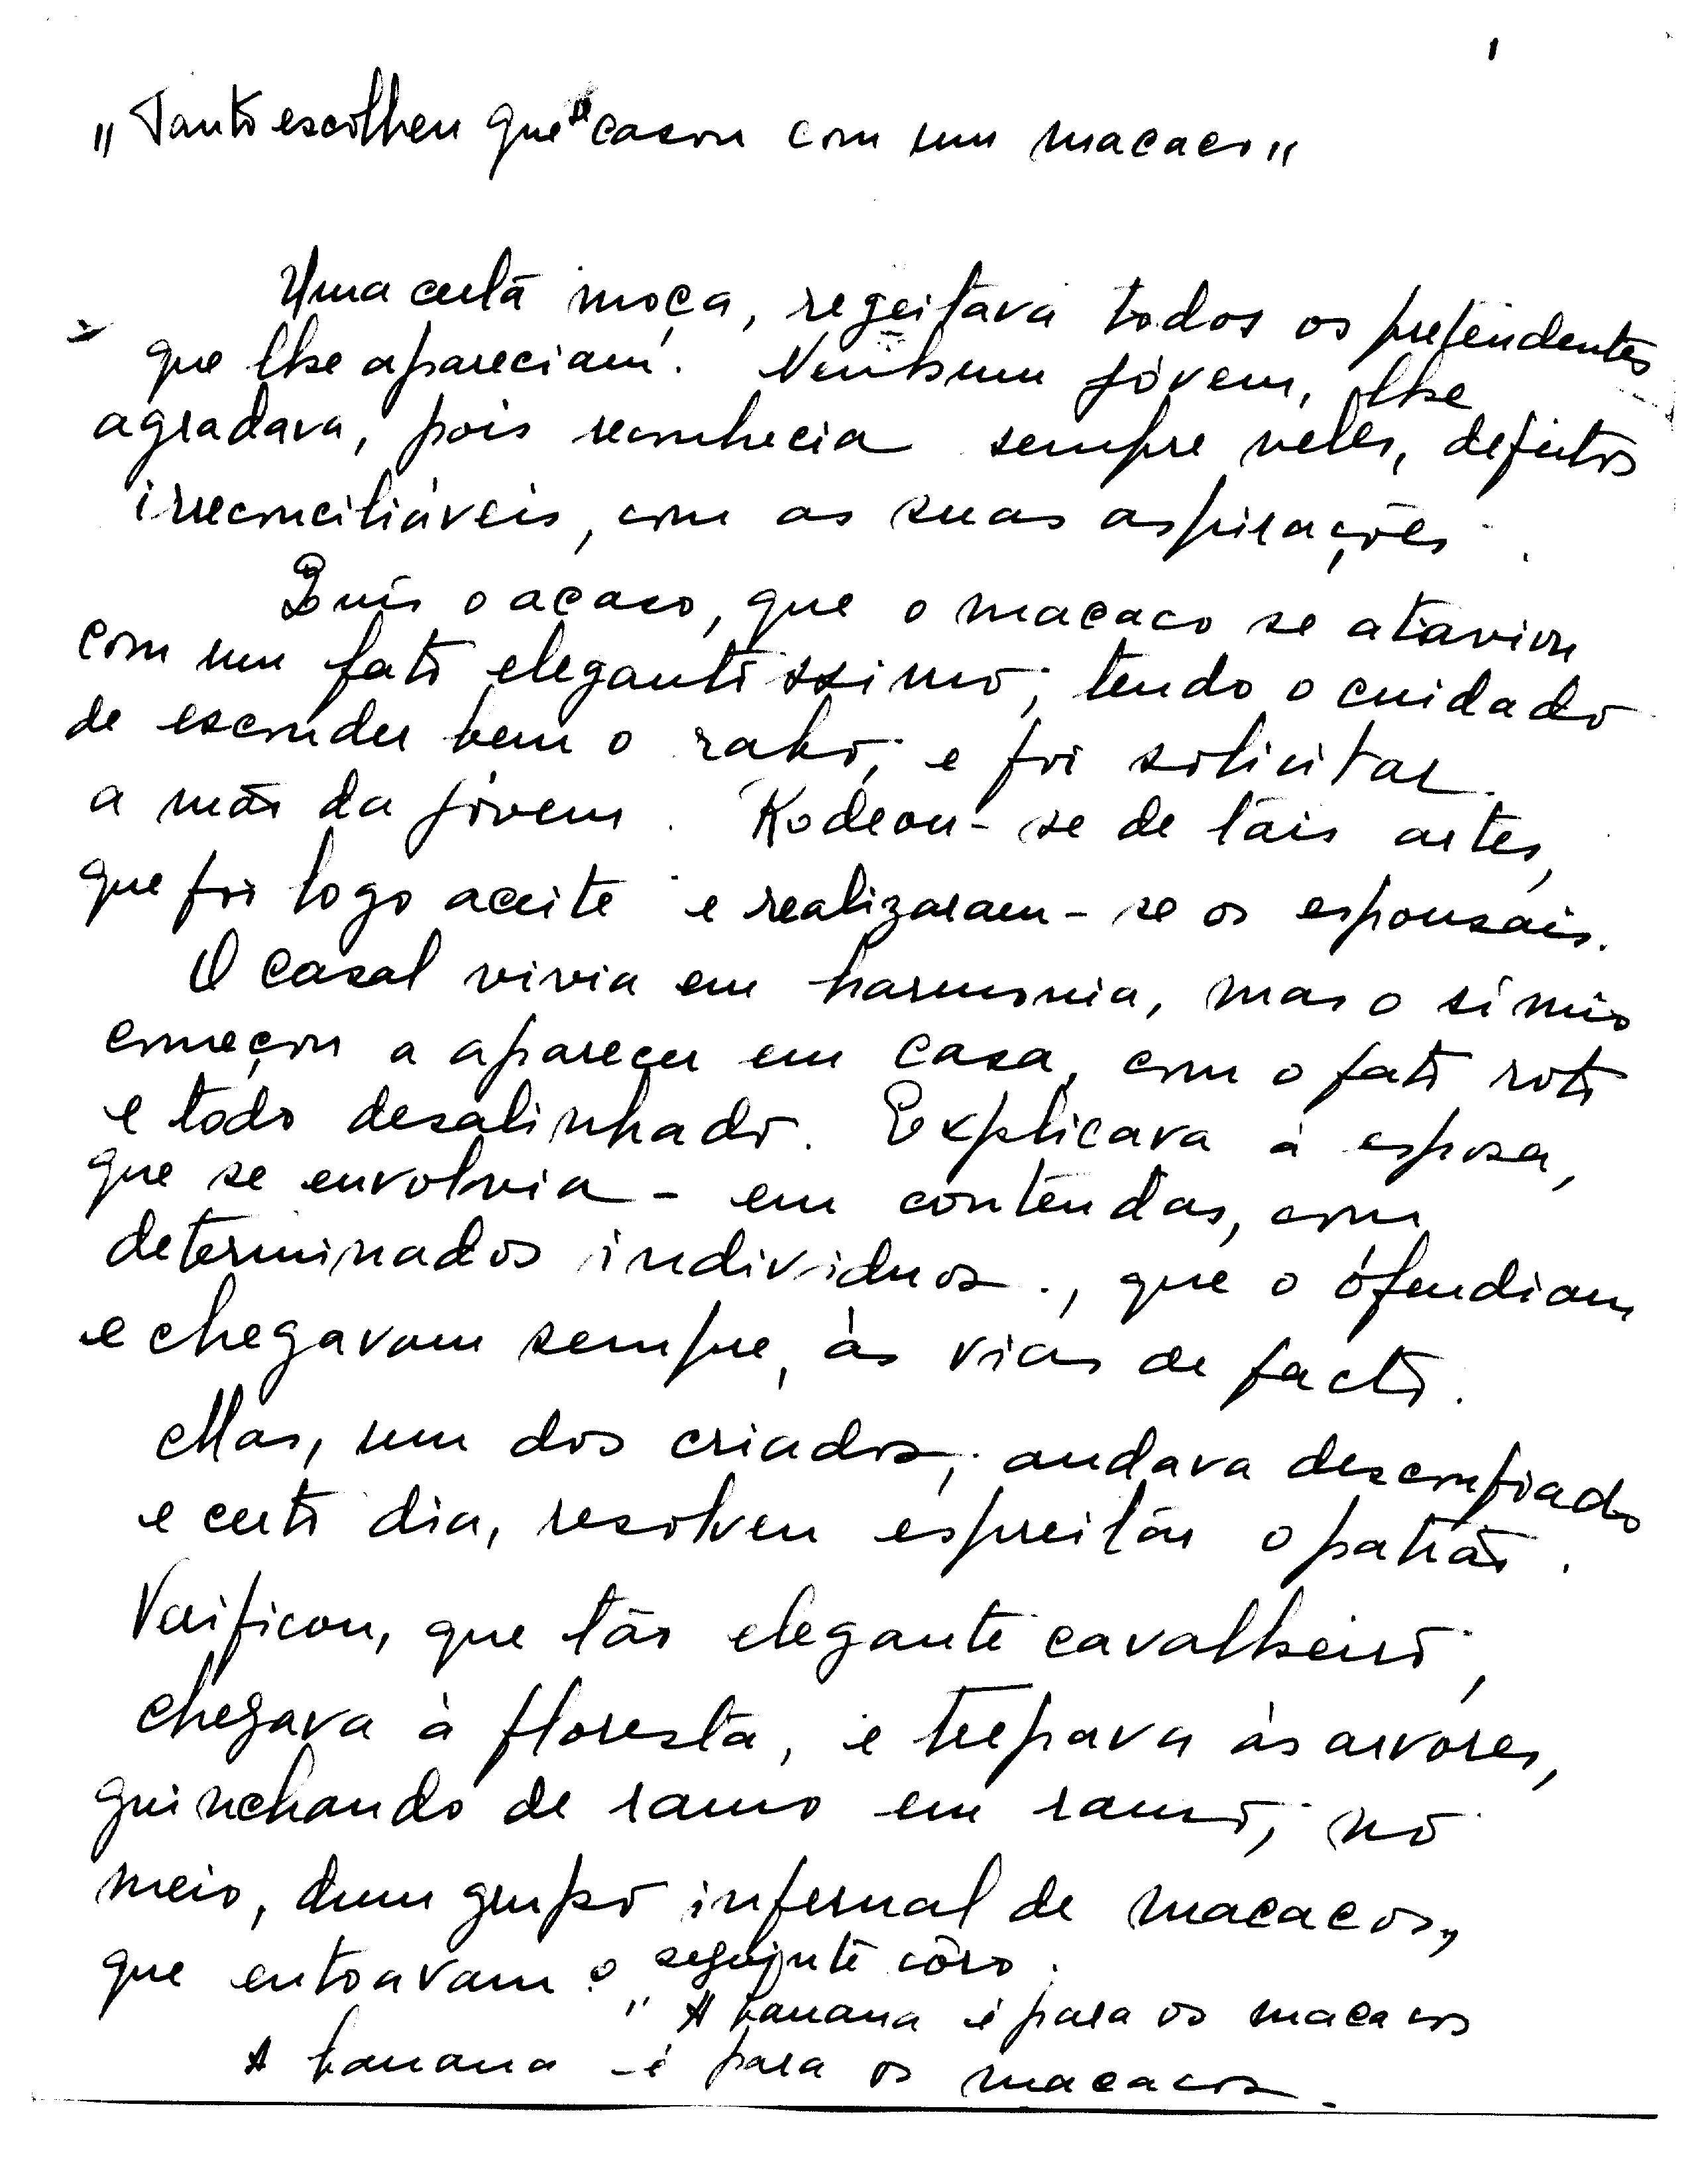 1
„Tanto escolheu que se casou com um macaco"
Uma certa moça, regeitava todos os pretendentes
que lhe apareciam. Nenhum jóvem, lhe
agradava, pois reconhecia sempre neles, defeitos
irreconciliáveis, com as suas aspirações.
Quis o acaso, que o macaco se ataviou
com um fato elegantissimo, tendo o cuidado
de esconder bem o rabo, e foi solicitar
a mão da jóvem. Rodeou-se de tais artes,
que foi logo aceite e realizaram-se os esponsais.
O casal vivia em harmonia, mas o símio
começou a aparecer em casa, com o fato roto
e todo desalinhado. Explicava à esposa,
que se envolvia - em contendas, com
determinados individuos., que o ofendiam
e chegavam sempre, às vias de facto.
Mas, um dos criados, andava desconfiado
e certo dia, resolveu espreitar o patrão.
Verificou, que tão elegante cavalheiro,
chegava à floresta, e trepava às arvores,
guinchando de ramo em ramo, no
meio, dum grupo infernal de macacos,
que entoavam o seguinte côro.
" A banana é para os macacos
A banana - é para os macacos.